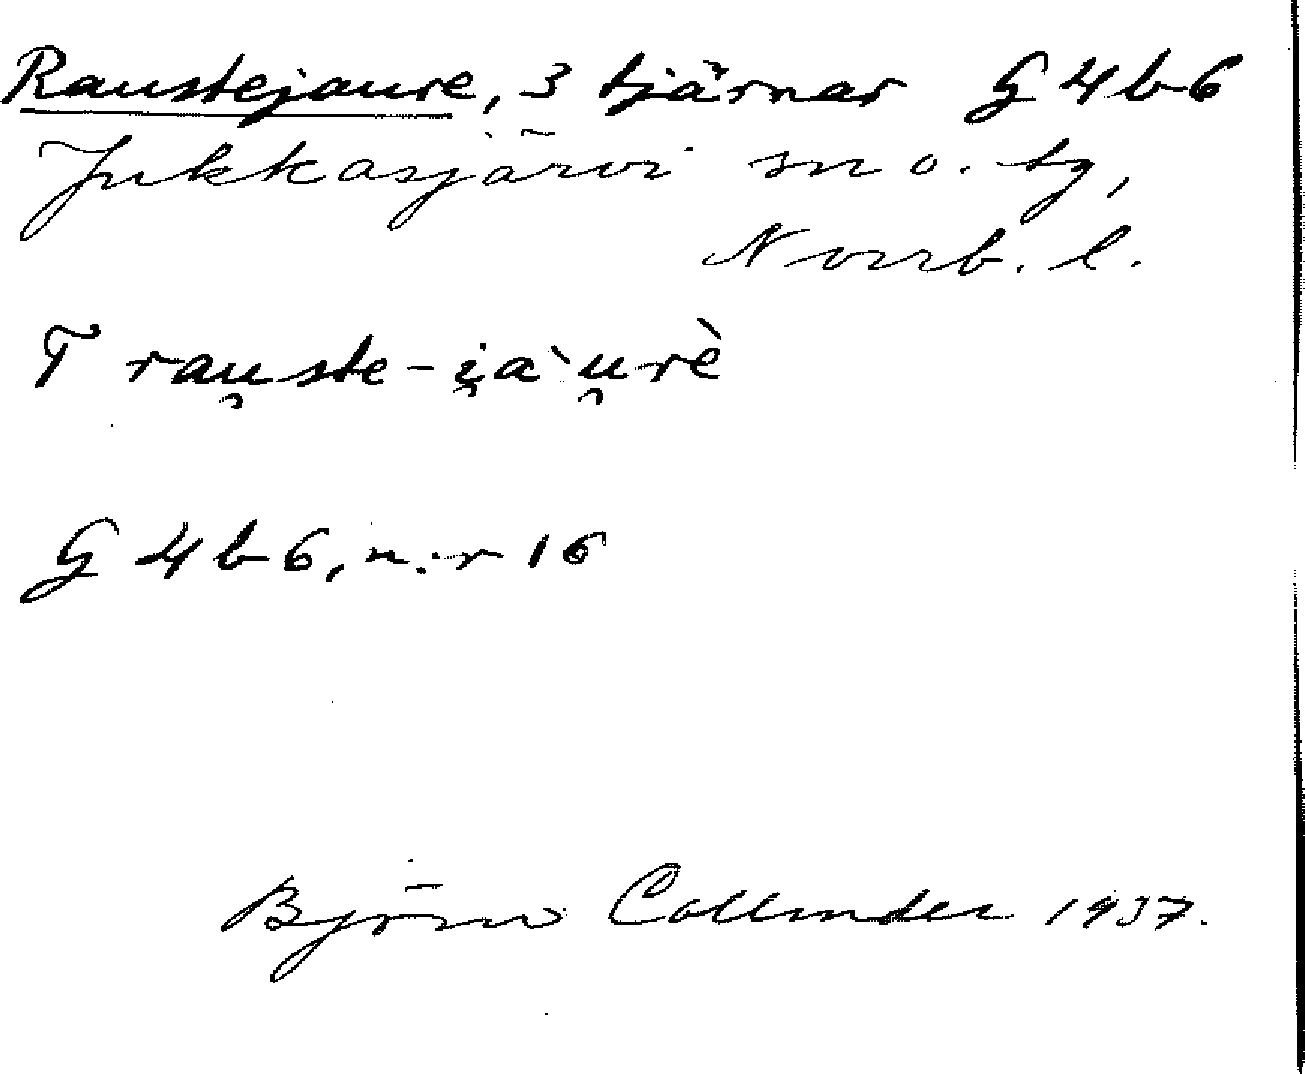 Raustejaure, 3 tjärnar G 4 b 6
Jukkasjärvi sn o. tg,
Norrb. l.
T rau̯ste-i̯a`u̯rè
G 4 b 6, n:r 16
Björn Collinder 1937.